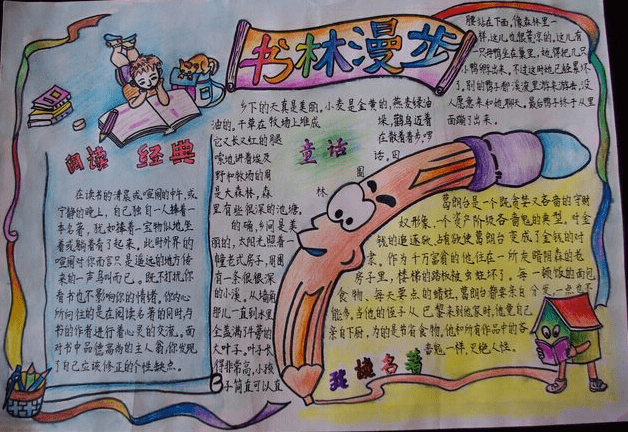 书林漫步
阅读 经典
在读书的清晨或喧闹的中午,或
宁静的晚上,自己独自一人捧着一
本名著,犹如捧着一宝物似地坐
着或躺着看了起来,此时外界的
喧闹对你而言只是遥远的地方传
来的一声鸟叫而已。既不打扰你
看书也不影响你的情绪,你内心
所向往的是在阅读名著的同时与
书的作者进行着心灵的交流。面
对书中品德高尚的主人翁,你发现
了自己应该修正的个性缺点。
童话
乡下的天真是美丽。小麦是金黄的,燕麦绿油
油的。干草在牧场上堆成垛,鹳鸟迈着
它又长又红的腿在散着步,啰
嗦地讲着埃及话。田
野和牧场的周围
是大森林,森林
里有些很深的池塘。
的确,乡间是美
丽的,太阳光照着一
幢老式房子,周围
有一条很深
的小溪,从墙角
那儿一直到水里
全盖满了牛蒡的
大叶子。叶子长
得非常高,小孩
子简直可以直
腰站在下面。像森林里一
样,这儿也很荒凉的。这儿有
一只母鸭坐在窠里,她得把几只
小鸭孵出来。不过这时她已经累坏
了。别的鸭子都在溪流里游来游去,没
人愿意来和她聊天。最后鸭子终于从里
面蹦了出来。
葛朗台是一个既贪婪又吝啬的守财
奴形象,一个资产阶级吝啬鬼的典型。对金
钱的追逐欲、占有欲使葛朗台变成了金钱的对
象,作为千万富翁的他,住在一所灰暗阴森的老
房子里,楼梯的踏板被虫蛀坏了。每一顿饭的面包
食物,每天要点的蜡烛,葛朗台都要亲自分发一点也不
能多,当他的侄子从巴黎来到他家时,他竟自己
亲自下厨,为的是节省食物,他和所有作品中的吝
啬鬼一样,灭绝人性。
我读名著